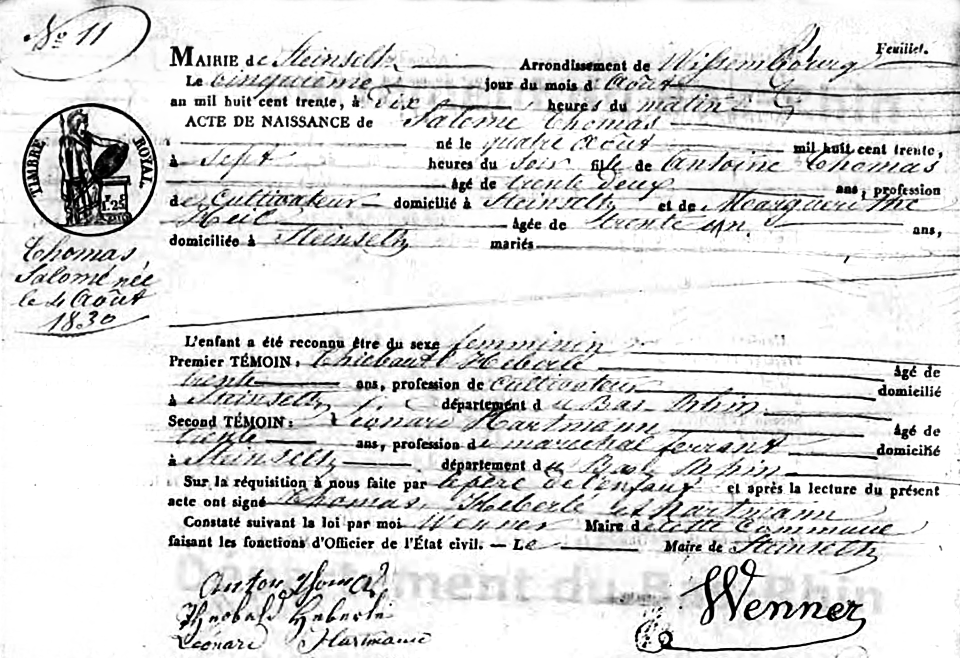 No 11
Feuillet.
MAIRIE de Steinseltz Arrondissement de Wissembourg
Le cinquième jour du mois d'Août
an mil huit cent trente, à Dix heures du matin
ACTE DE NAISSANCE de Salomé Thomas
né le quatre Août mil huit cent trente,
à Sept heures du Soir file de Antoine Thomas
âgé de trente deux ans, profession
de Cultivateur domicilié à Steinseltz et de Marguerithe
Heil âgée de trente un ans,
domiciliée à Steinseltz mariés
TIMBRE ROYAL.
1.25
Thomas
Salomé née
le 4 Août
1830
L'enfant a été reconnu être du sexe femminin
Premier TÉMOIN: Thiebaut Heberle âgé de
trente ans, profession de Cultivateur domicilié
à Steinseltz département du Bas Rhin
Second TÉMOIN: Léonard Hartmann âgé de
trente ans, profession de maréchal ferrant domicilié
à Steinseltz département du Bas Rhin
Sur la réquisition à nous faite par le père de l'enfant et après la lecture du présent
acte ont signé Thomas, Heberle et Hartmann
Constaté suivant la loi par moi Wenner Maire de cette Commune
faisant les fonctions d'Officier de l'État civil. — Le Maire de Steinseltz
Département du Bas Rhin
Anton Thomas
Theobald Heberle
Léonard Hartmann
Wenner